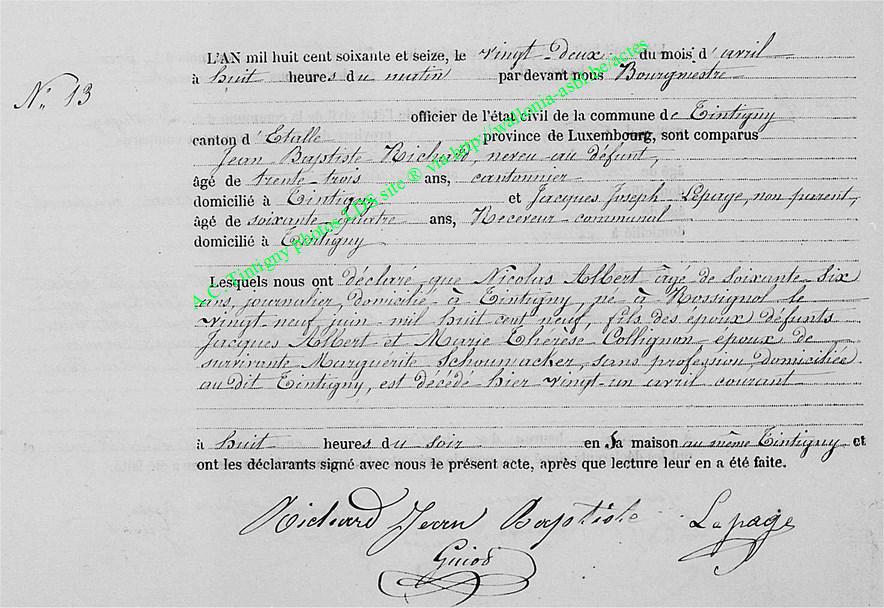 L'AN mil huit cent soixante et seize, le vingt-deux du mois d'avril
à huit heures du matin par devant nous Bourgmestre
N° 13
officier de l'état civil de la commune de Tintigny
canton d'Etalle province de Luxembourg, sont comparus
Jean Baptiste Richard, neveu au défunt,
âgé de trente-trois ans, cantonnier
domicilié à Tintigny et Jacques Joseph Lepage, non parent,
âgé de soixante-quatre ans, Receveur communal
domicilié à Tintigny
Lesquels nous ont déclaré que Nicolas Albert âgé de soixante-six
ans, journalier, domicilié à Tintigny, né à Rossignol le
vingt-neuf juin mil huit cent neuf, fils des époux défunts
Jacques Albert et Marie Thérèse Collignon époux de
survivante Marguérite Schoumacker, sans profession, domiciliée
au dit Tintigny, est décédé hier vingt-un avril courant
à huit heures du soir en sa maison au même Tintigny et
ont les déclarants signé avec nous le présent acte, après que lecture leur en a été faite.
Richard Jean Baptiste Lepage
Guiod
A.C. Tintigny photos LDE site ® via http://wallonia-asbl.be/actes